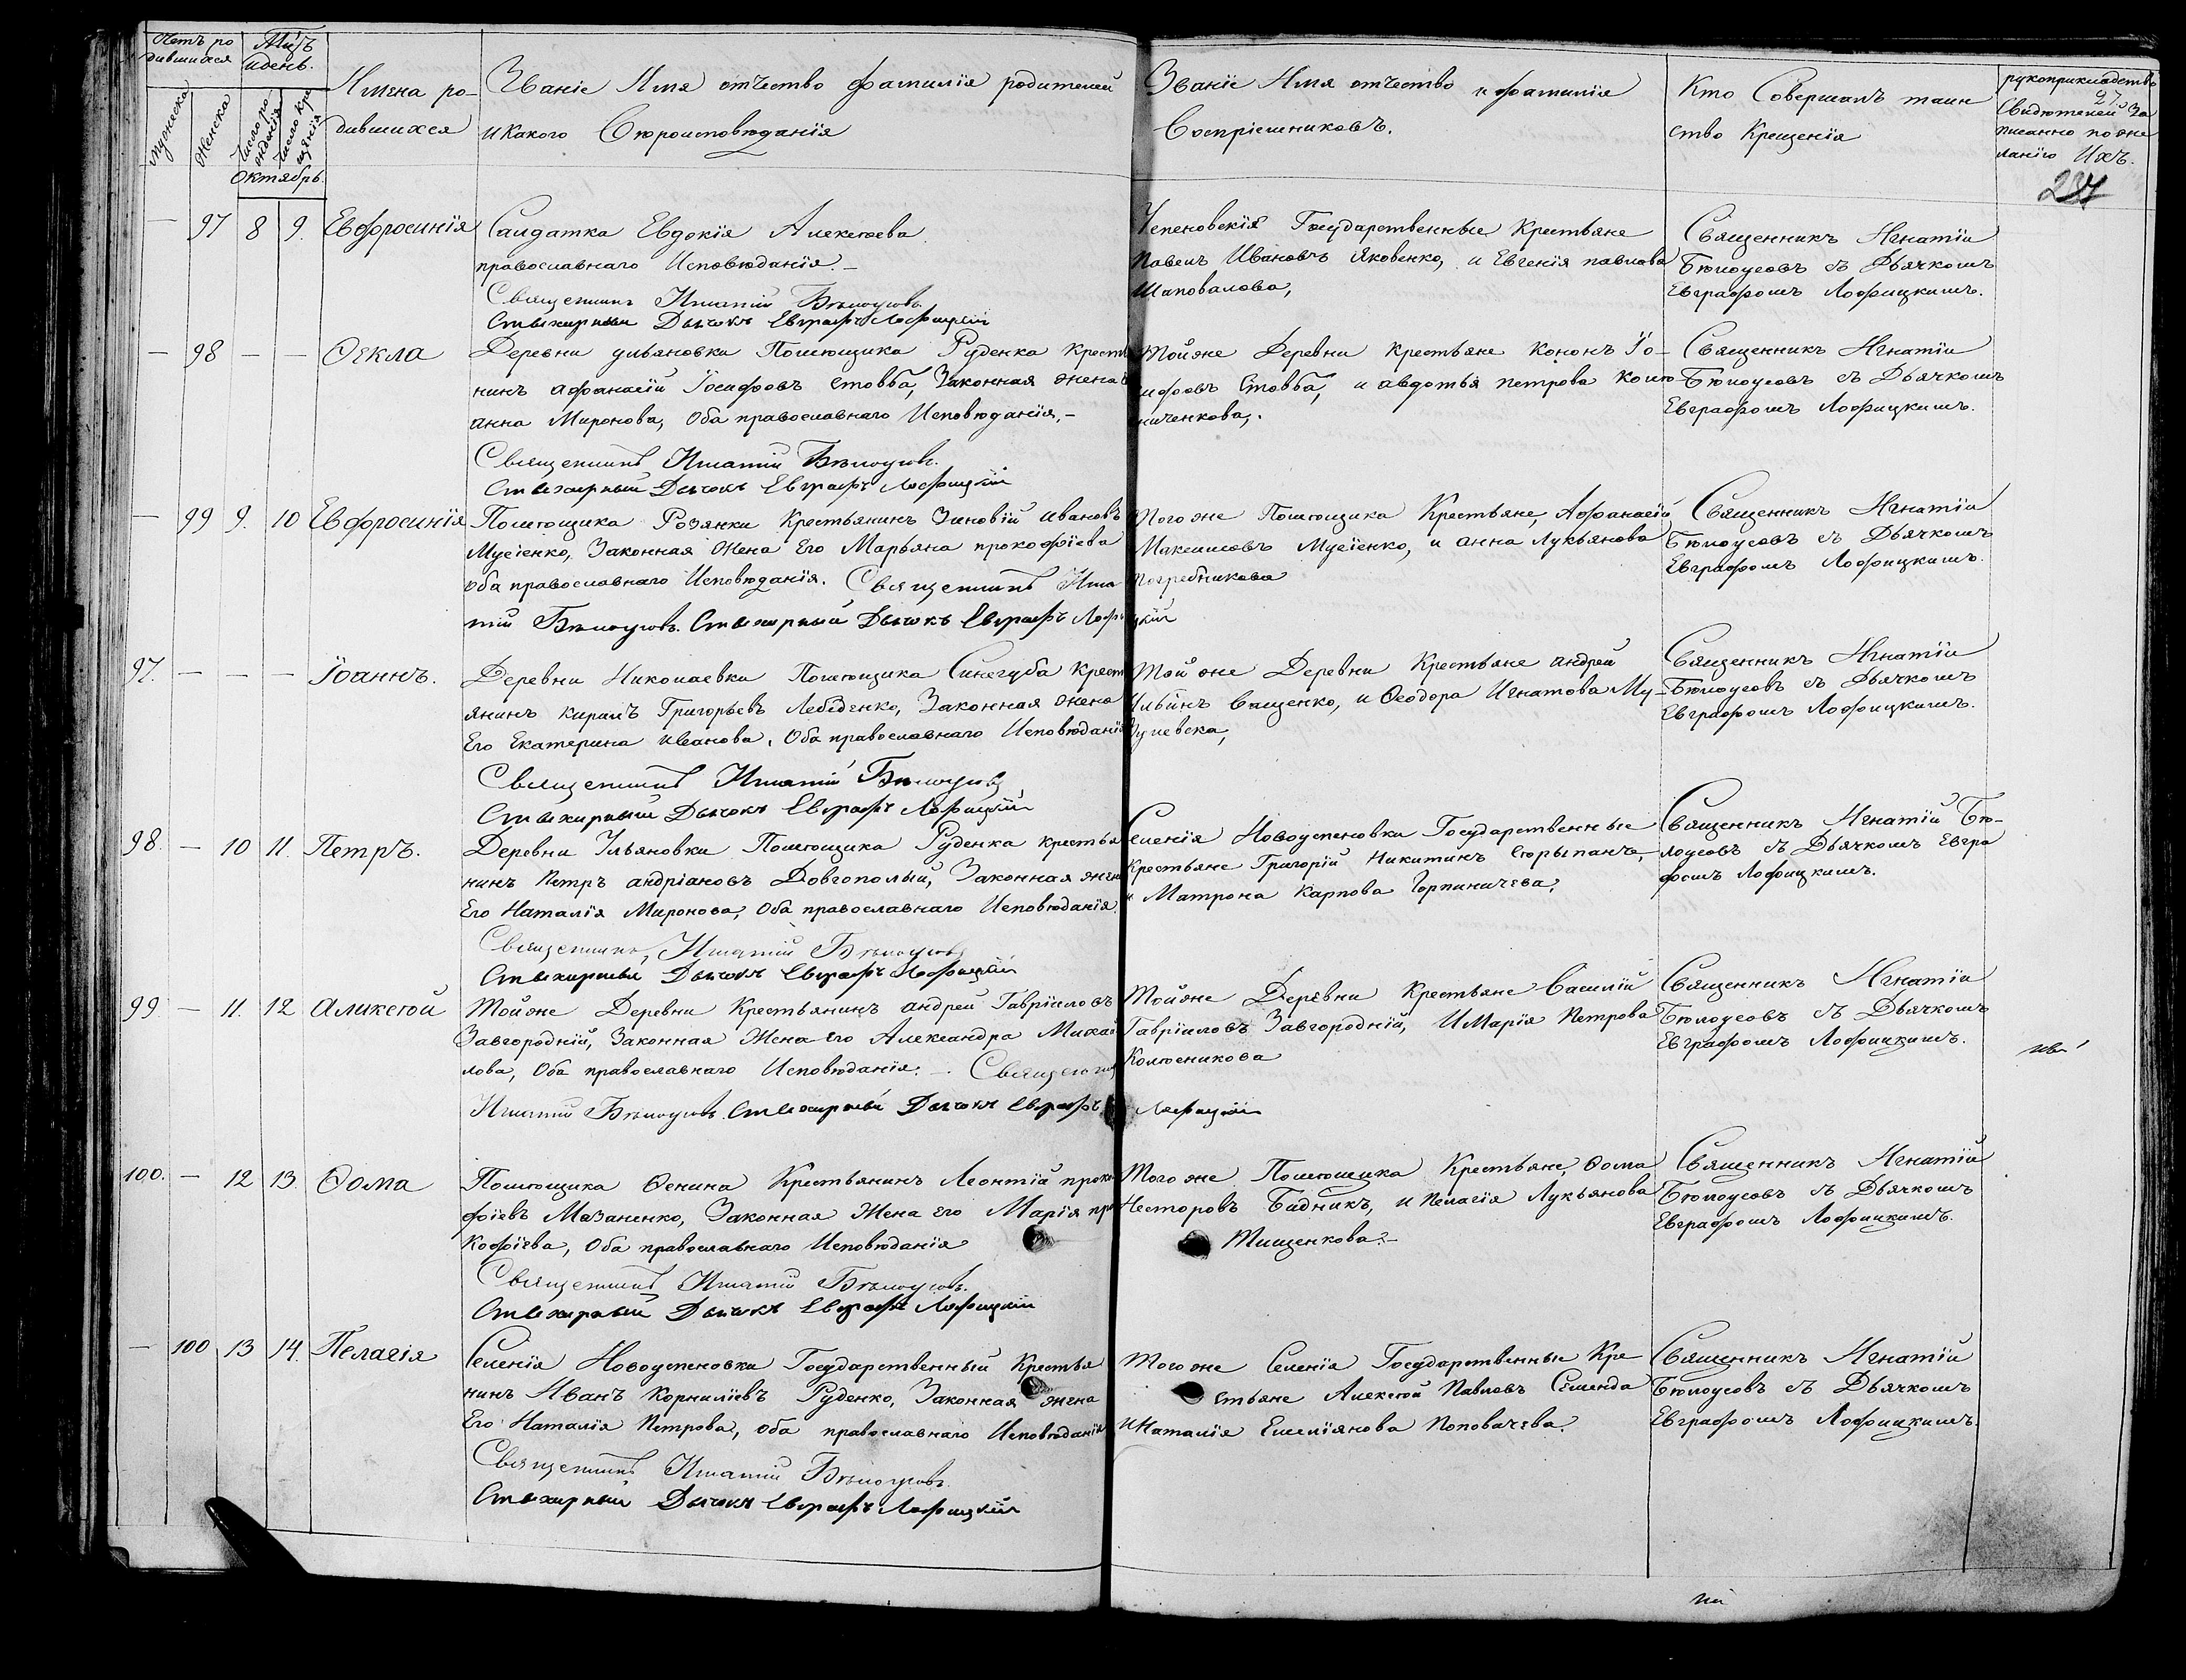 Четъ ро
дившихся
Мц̃ъ
и день.
Мужеска
Женска
Число ро-
жденія
Число кре
щенія
Октябрь
Имена ро-
дившихся
Званіе Имя отчество фамилія родителей
и какого Вѣроисповѣданія
Званіе Имя отчество и фамилія
Воспріемниковъ.
Кто Совершалъ таин
ство Крещенія
рукоприкладство
Свидѣтелей За
писанно по же
ланію Ихъ.
27
237
— 97 8 9. Евфросинія
Салдатка Евдокія Алексѣева
православнаго Исповѣданія.—
Священникъ Игнатій Бѣлоусовъ
Стихирный Дьячокъ Евграфъ Лофицкій
Чепеновскія Государственные Крестьяне
Павелъ Ивановъ Яковенко, и Евгенія павлова
Шаповалова,
Священникъ Игнатій
Бѣлоусовъ съ Дьячкомъ
Евграфомъ Лофицкимъ.
— 98 — — Ѳекла
Деревни ульяновки Помѣщика Руденка крестья
нинъ афанасій Іосифовъ стовба, Законная жена е
анна Миронова, Оба православнаго Исповѣданія.—
Священникъ Игнатій Бѣлоусовъ.
Стихирный Дьячокъ Евграфъ Лофицкій
Тойже Деревни крестьяне Кононъ Іо-
сифовъ Стовба, и авдотья петрова Коло
ниченкова,.
Священникъ Игнатій
Бѣлоусовъ съ Дьячкомъ
Евграфомъ Лофицкимъ.
— 99 9. 10 Евфросинія
Помѣщика Розянки Крестьянинъ Зиновій ивановъ
Мусіенко, Законная Жена Его Марьяна прокофіева
оба православнаго Исповѣданія. Священникъ Игна
тій Бѣлоусовъ. Стихирный Дьячокъ Евграфъ Лофи
цкій
Того же Помѣщика Крестьяне, Афанасій
Максимовъ Мусіенко, и анна Лукьянова
Погребникова
Священникъ Игнатій
Бѣлоусовъ съ Дьячкомъ
Евграфомъ Лофицкимъ.
97. — — — Іоаннъ.
Деревни Николаевки Помѣщика Синегуба Крест
янинъ кирилъ Григорьевъ Лебеденко, Законная жена
Его Екатерина иванова, Оба православнаго Исповѣданія
Священникъ Игнатій Бѣлоусовъ
Стихирный Дьячокъ Евграфъ Лофицкій
Той же Деревни Крестьяне андрей
Ильинъ Ващенко, и Ѳеодора Игнатова Му-
зулевска,
Священникъ Игнатій
Бѣлоусовъ съ Дьячкомъ
Евграфомъ Лофицкимъ.
98. — 10 11. Петръ.
Деревни Ульяновки Помѣщика Руденка крестья
нинъ Петръ андріановъ Довгополый, Законная жена
Его Наталія Миронова, Оба православнаго Исповѣданія.
Священникъ, Игнатій Бѣлоусовъ
Стихирный Дьячокъ Евграфъ Лофицкій
Селенія Новоуспеновки Государственные
Крестьяне Григорій Никитинъ Скорыпанъ,
и Матрона Карпова Горпиничева,
Священникъ Игнатій Бѣ-
лоусовъ съ Дьячкомъ Евгра
фомъ Лофицкимъ.
99. — 11. 12 Аликсѣй
Тойже Деревни Крестьянинъ андрей Гавріиловъ
Завгородній, Законная Жена его Александра Михай
лова, Оба православнаго Исповѣданія. — Священникъ
Игнатій Бѣлоусовъ. Стихирный Дьячокъ Евграфъ
Лофицкій
Тойже Деревни Крестьяне Василій
Гавріиловъ Завгородній, И Марія Петрова
Колѣсникова
Священникъ Игнатій
Бѣлоусовъ съ Дьячкомъ
Евграфомъ Лофицкимъ.
100. — 12 13. Ѳома
Помѣщика Ѳенина Крестьянинъ Леонтій проко
фіевъ Мазаненко, Законная Жена его Марія про
кофіева, Оба православнаго Исповѣданія
Священникъ Игнатій Бѣлоусовъ.
Стихирный Дьячокъ Евграфъ Лофицкій
Того же Помѣщика Крестьяне, Ѳома
Несторовъ Бидникъ, и пелагія Лукьянова
Тищенкова.—
Священникъ Игнатій
Бѣлоусовъ съ Дьячкомъ
Евграфомъ Лофицкимъ.
— 100 13 14. Пелагія
Селенія Новоуспеновки Государственный Крестья
нинъ Иванъ Корниліевъ Руденко, Законная жена
Его Наталія Петрова, оба православнаго Исповѣданія
Священникъ Игнатій Бѣлоусовъ.
Стихирный Дьячокъ Евграфъ Лофицкій
Того же Селенія Государственные Кре-
стьяне Алексѣй Павловъ Семенда
и Наталія Емеліянова Поповачева.
Священникъ Игнатій
Бѣлоусовъ съ Дьячкомъ
Евграфомъ Лофицкимъ.